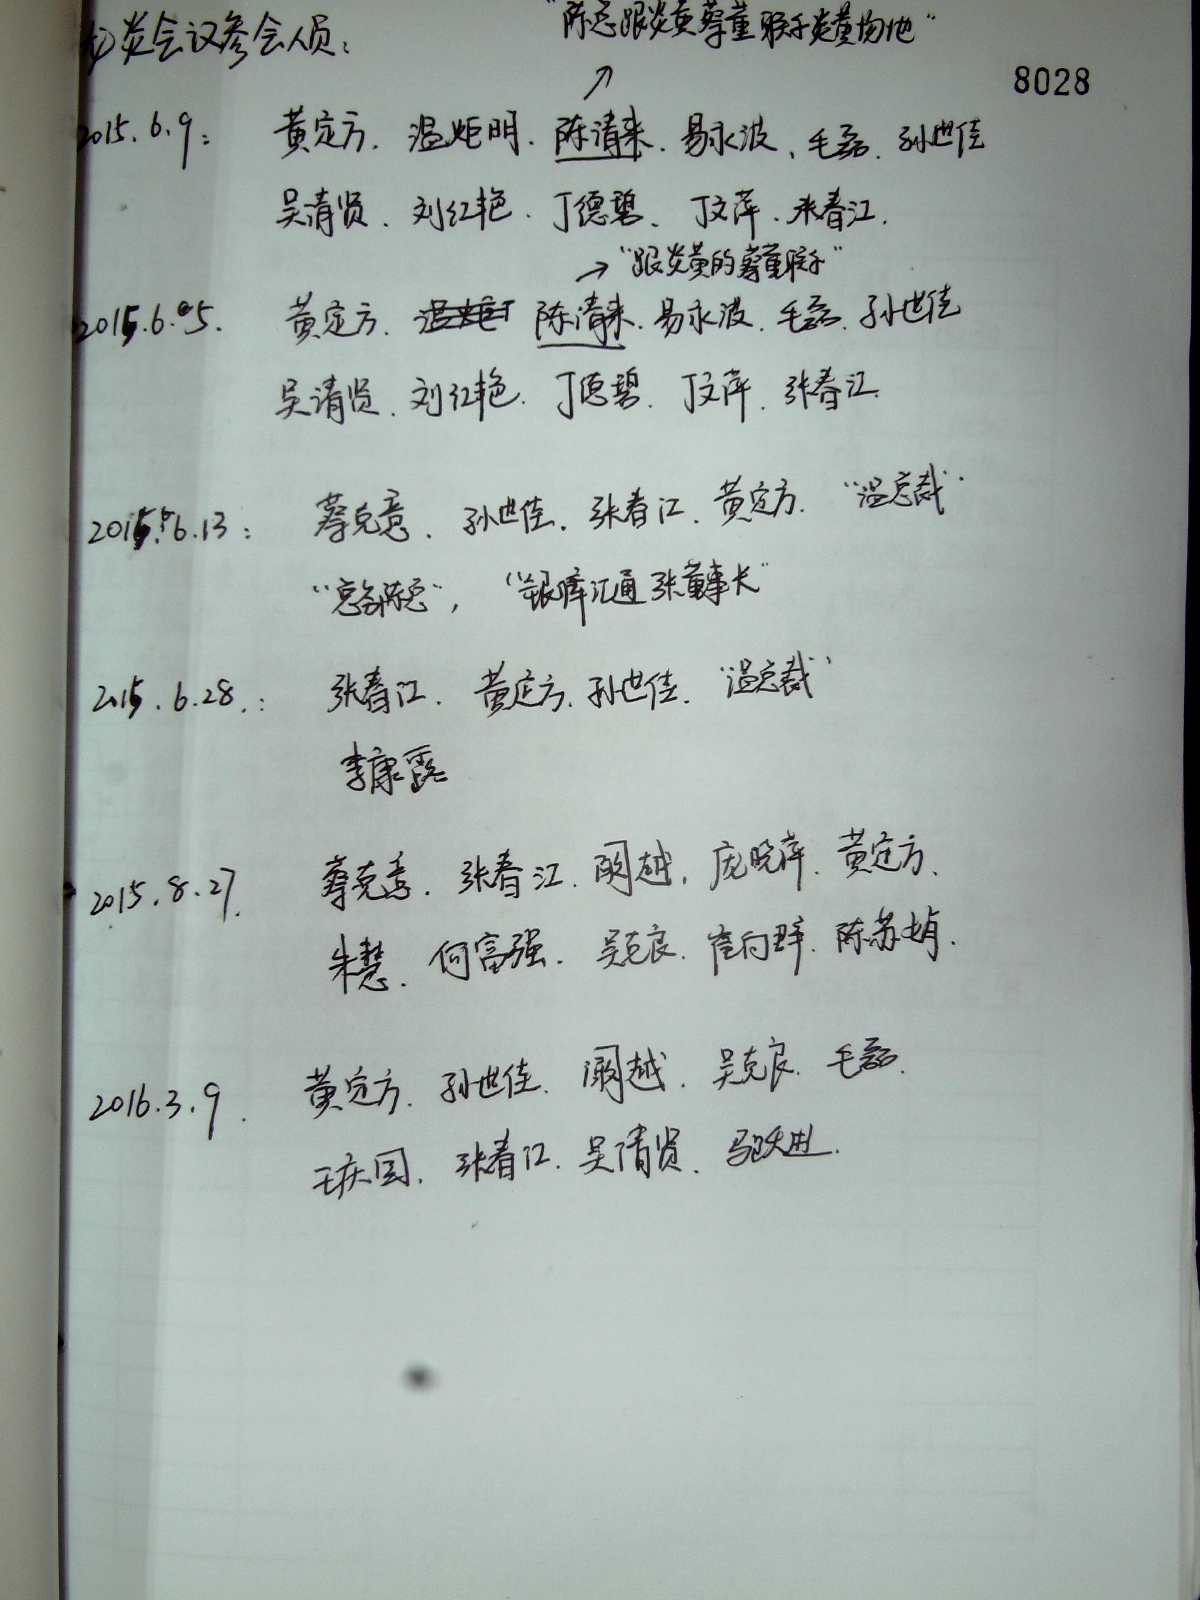 炎会议参会人员：
"陈总跟炎黄蔡董联系炎黄场地"
8028
2015.6.9： 黄定方．温炬明．陈清来．易永波、毛磊．孙世佳
吴清贤．刘红艳．丁德碧、丁文萍．张春江．
→"跟炎黄的蔡董联系"
2015.6.5． 黄定方． 陈清来．易永波．毛磊．孙世佳
吴清贤．刘红艳．丁德碧．丁文萍．张春江．
2015.6.13： 蔡克意．孙世佳．张春江．黄定方．"温总裁"
"陈总"，"银库汇通张董事长"
2015.6.28．： 张春江．黄定方．孙世佳．"温总裁"
李康露
2015.8.27． 蔡克意．张春江．阚越．庞晓萍．黄定方．
朱慧．何富强．吴克良．崔向群．陈苏娟．
2016.3.9． 黄定方．孙世佳．阚越．吴克良．毛磊．
王庆国．张春江．吴清贤．马跃进．